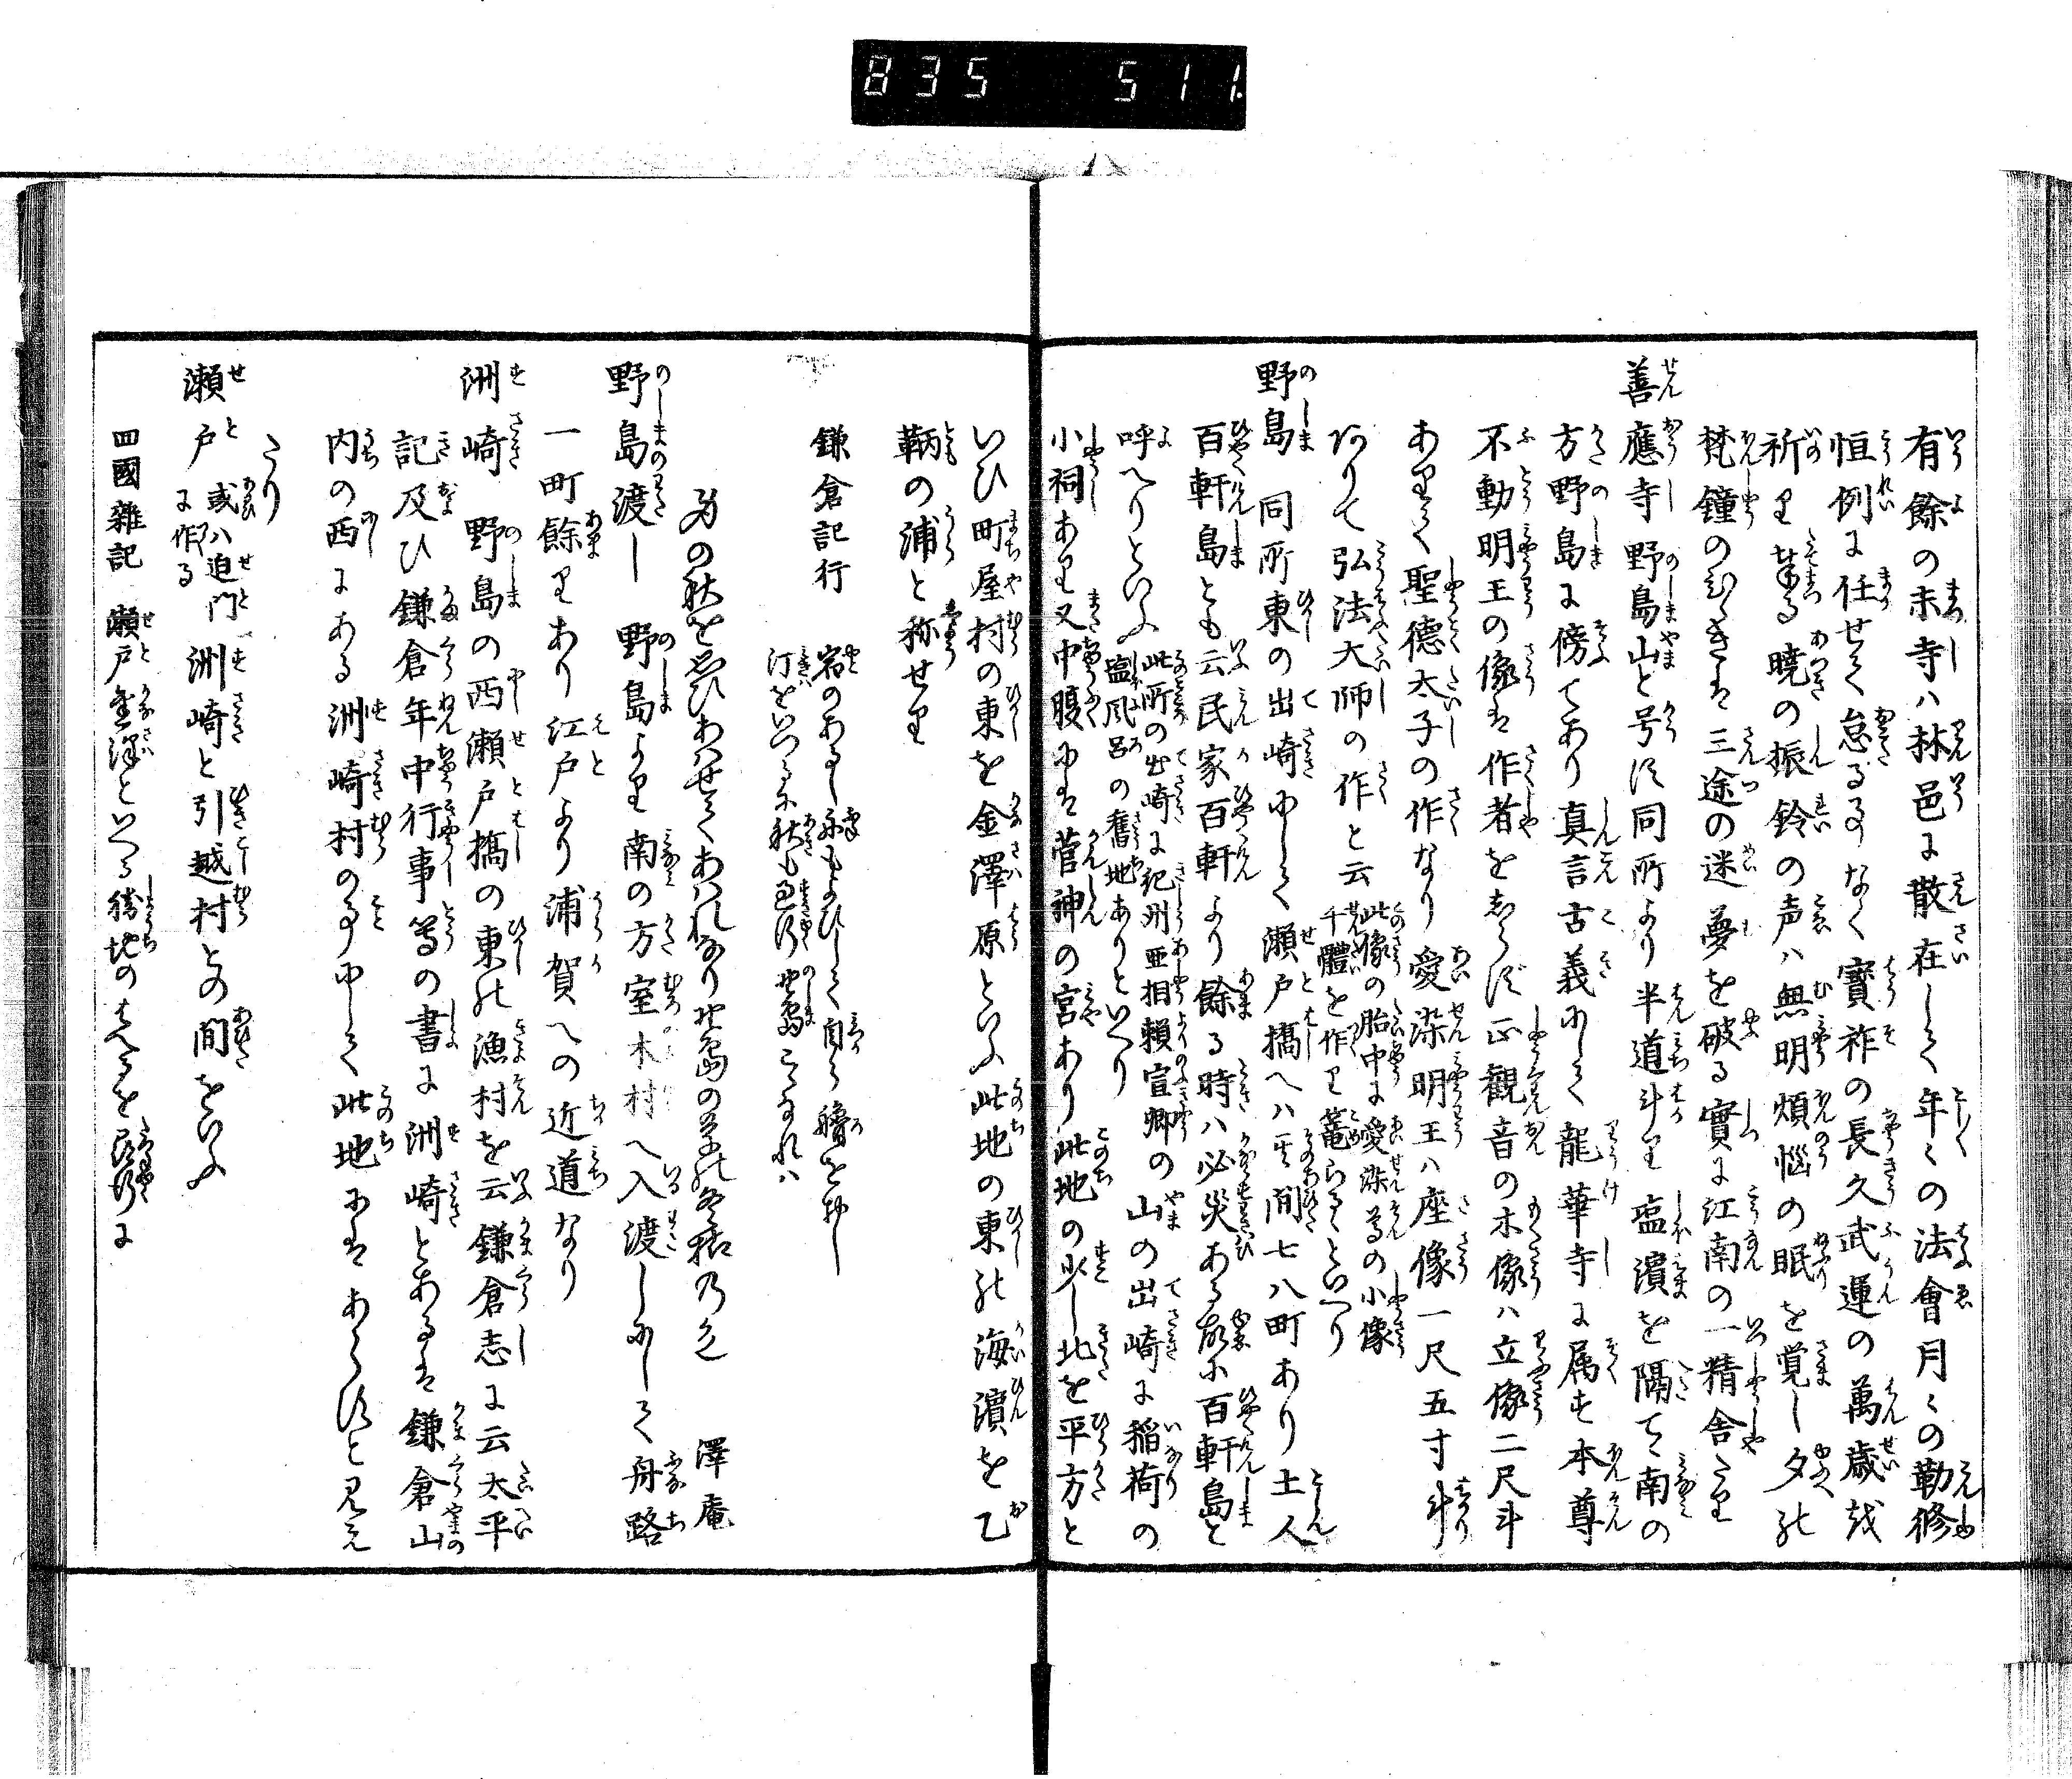 835 511.
有餘の末寺ハ林邑に散在して年〻の法會月〻の勤修
恒例に任せて怠る事なく寶祚の長久武運の萬歳を
祈り奉る曉の振鈴の声ハ無明煩悩の眠を覚し夕の
梵鐘のひゞきは三途の迷夢を破る實に江南の一精舎たり
善應寺 野島山と号す同所より半道斗り塩濱を隔て南の
方野島に傍てあり真言古義にして龍華寺に属す本尊
不動明王の像は作者をしらず正觀音の木像ハ立像二尺斗
ありて聖德太子の作なり愛染明王ハ座像一尺五寸斗
ありて弘法大師の作と云 此像の胎中に愛染尊の小像
千體を作り篭らるゝといへり
野島 同所東の出崎にして瀬戸橋へハ其間七八町あり土人
百軒島とも云民家百軒より餘る時ハ必災ある故に百軒島と
呼へりといふ 此所の出崎に紀州亜相頼宣卿の
塩風呂の舊地ありといへり 山の出崎に稲荷の
小祠あり又中腹には菅神の宮あり此地の少し北を平方と
いひ町屋村の東を金澤原といふ此地の東の海濱を乙
鞆の浦と称せり
鎌倉記行 宿のあるし舟もよひして自ら艪を押し
汀をいつる
身の秋を思ひあはせてあはれなり野島の草の冬枯の色 澤庵
野島渡し 野島より南の方室木村へ入渡しにして舟路
一町餘りあり江戸より浦賀への近道なり
洲崎 野島の西瀬戸橋の東の漁村を云鎌倉志に云太平
記及ひ鎌倉年中行事等の書に洲崎とあるは鎌倉山
内の西にある洲崎村の事にして此地にはあらすと見え
たり
瀬戸 或ハ迫門
に作る 洲崎と引越村との間をいふ
四國雜記 瀬戸金澤といへる勝地のはへるを尋行に